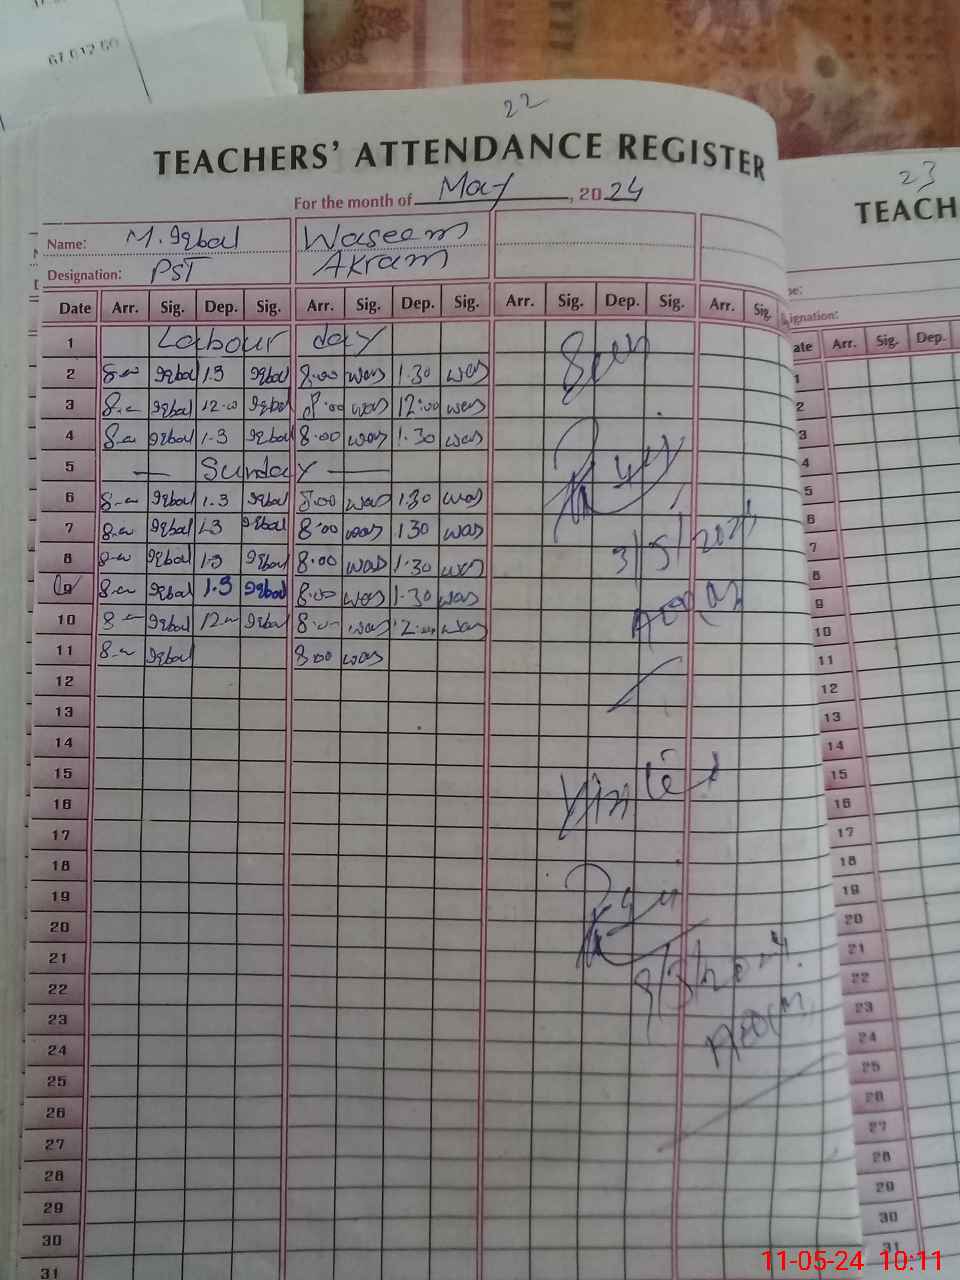 67,612.60
22
TEACHERS' ATTENDANCE REGISTER
For the month of May, 2024
Name: M. Iqbal Waseem
Designation: PST Akram
Date Arr. Sig. Dep. Sig. Arr. Sig. Dep. Sig. Arr. Sig. Dep. Sig. Arr. Sig.
1 Labour day
2 8-00 Iqbal 1.3 Iqbal 8.00 was 1.30 was
3 8-00 Iqbal 12-00 Iqbal 8.00 was 12:00 was
4 8-00 Iqbal 1-3 Iqbal 8.00 was 1.30 was
5 — Sunday —
6 8-00 Iqbal 1.3 Iqbal 8.00 was 1.30 was
7 8-00 Iqbal 1.3 Iqbal 8.00 was 1.30 was
8 8-00 Iqbal 1.3 Iqbal 8.00 was 1.30 was
9 8-00 Iqbal 1.3 Iqbal 8.00 was 1.30 was
10 8-00 Iqbal 12-00 Iqbal 8.00 was 12.00 was
11 8-00 Iqbal 8.00 was
12
13
14
15
16
17
18
19
20
21
22
23
24
25
26
27
28
29
30
31
Seen
3/5/2024
Visited
23
TEACH
signation:
ate Arr. Sig. Dep.
1
2
3
4
5
6
7
8
9
10
11
12
13
14
15
16
17
18
19
20
21
22
23
24
25
26
27
28
29
30
31
11-05-24 10:11